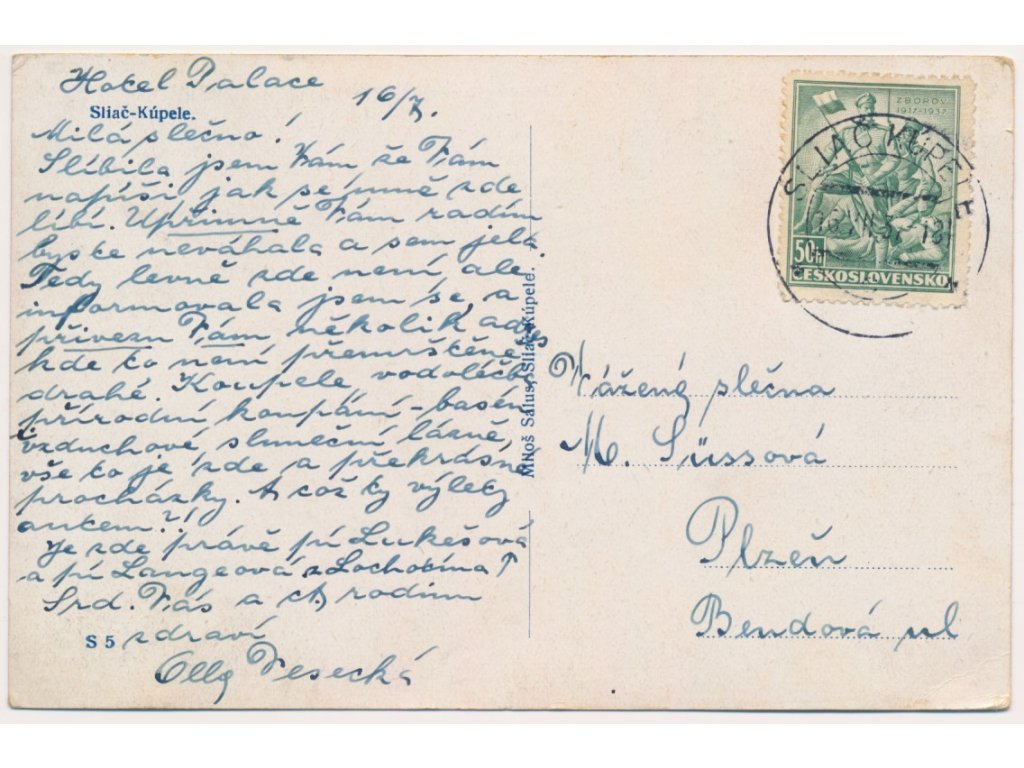 Hotel Palace
16/7.
Sliač-Kúpele.
Milá slečno!
Slíbila jsem Vám že Vám
napíši jak se mně zde
líbí. Upřimně Vám radím
byste neváhala a sem jela
Tedy levně zde není, ale
informovala jsem se, a
přivezu Vám několik adres
kde to není přemrštěně
drahé. Koupele, vodoléčba
přírodní koupání - basén
vzduchové sluneční lázně,
vše to je zde a překrásné
procházky. A což ty výlety
autem?!
Je zde právě pí Lukešová
a pí Langeová z Lochotína
Srd. Vás a ct. rodinu
zdraví
Olly Vesecká
S 5
Miloš Salus, Sliač-Kúpele.
ZBOROV
1917-1937
50 h
ČESKOSLOVENSKO
SLIAČ KÚPELE
Vážená slečna
M. Süssová
Plzeň
Bendová ul